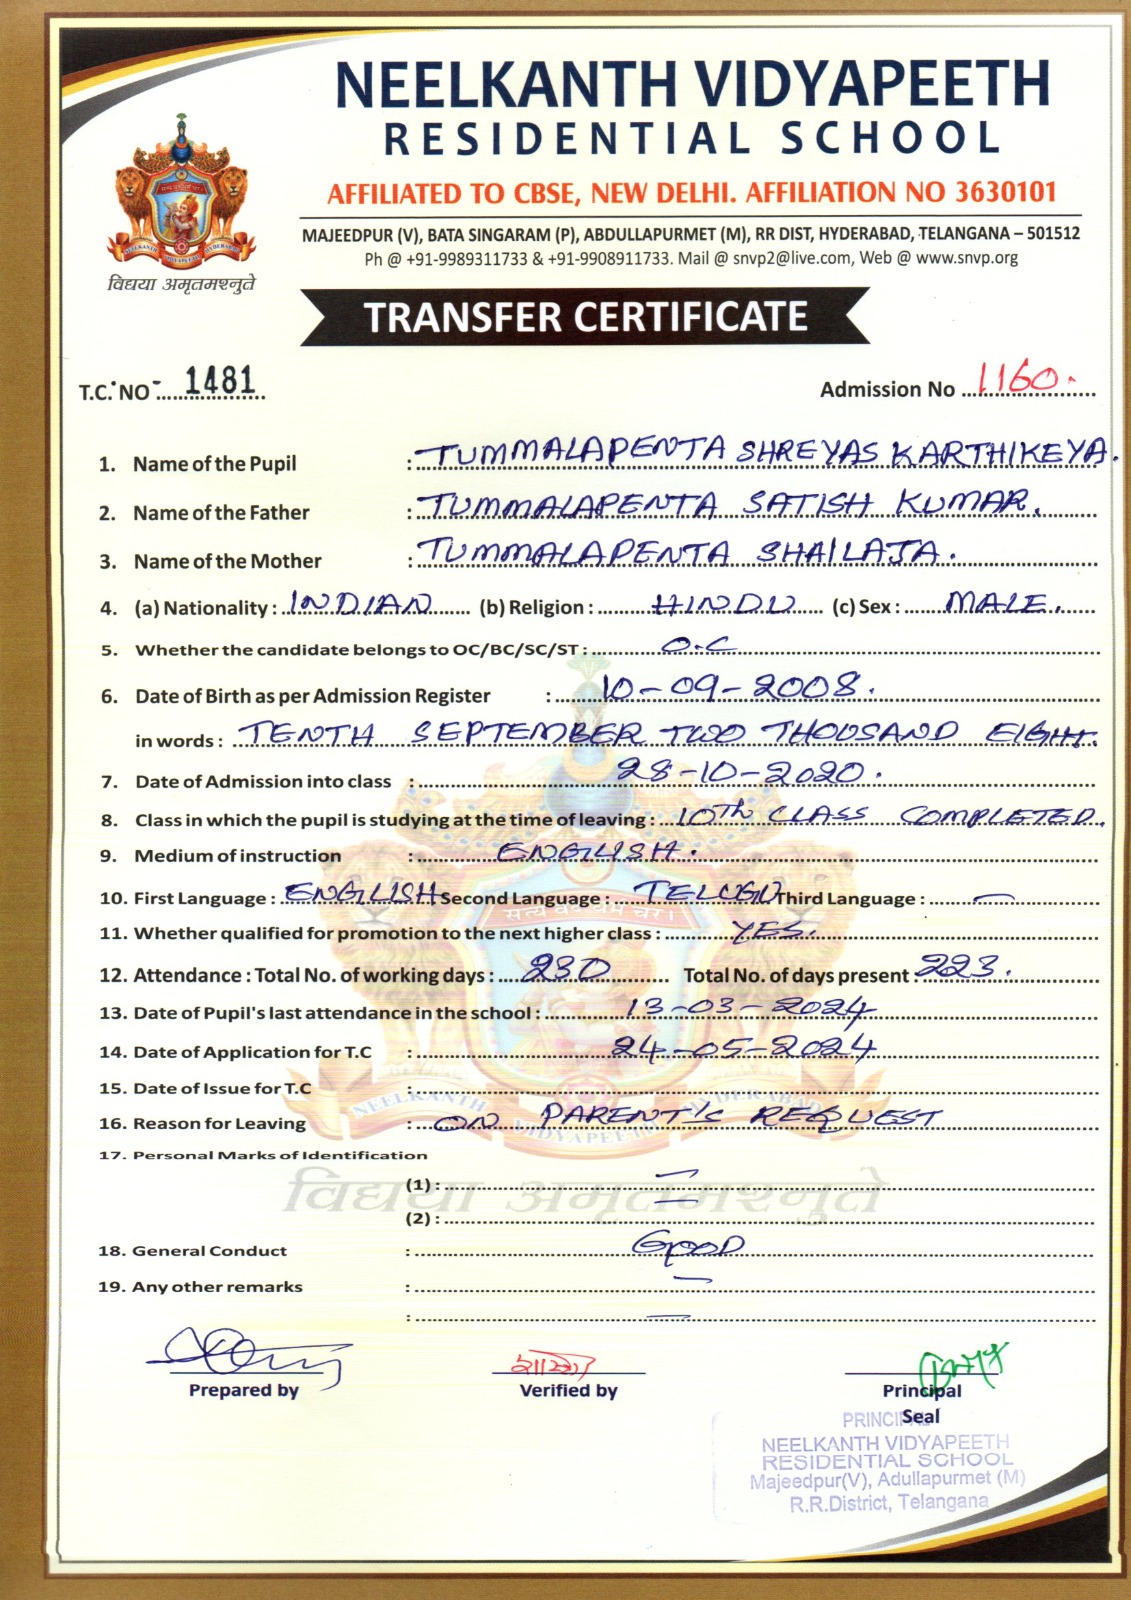 NEELKANTH VIDYAPEETH
RESIDENTIAL SCHOOL
AFFILIATED TO CBSE, NEW DELHI. AFFILIATION NO 3630101
MAJEEDPUR (V), BATA SINGARAM (P), ABDULLAPURMET (M), RR DIST, HYDERABAD, TELANGANA – 501512
Ph @ +91-9989311733 & +91-9908911733. Mail @ snvp2@live.com, Web @ www.snvp.org
NEELKANTH VIDYAPEETH HYDERABAD
विद्यया अमृतमश्नुते
TRANSFER CERTIFICATE
T.C. NO - 1481 Admission No 1160.
1. Name of the Pupil : TUMMALAPENTA SHREYAS KARTHIKEYA.
2. Name of the Father : TUMMALAPENTA SATISH KUMAR.
3. Name of the Mother : TUMMALAPENTA SHAILAJA.
4. (a) Nationality : INDIAN (b) Religion : HINDU (c) Sex : MALE.
5. Whether the candidate belongs to OC/BC/SC/ST : O.C
6. Date of Birth as per Admission Register : 10-09-2008.
in words : TENTH SEPTEMBER TWO THOUSAND EIGHT.
7. Date of Admission into class : 28-10-2020.
8. Class in which the pupil is studying at the time of leaving : 10Th CLASS COMPLETED.
9. Medium of instruction : ENGLISH.
10. First Language : ENGLISH Second Language : TELUGU Third Language : —
सत्यं वद धर्मं चर।
11. Whether qualified for promotion to the next higher class : YES.
12. Attendance : Total No. of working days : 230 Total No. of days present 223.
13. Date of Pupil's last attendance in the school : 13-03-2024
14. Date of Application for T.C : 24-05-2024
15. Date of Issue for T.C :
16. Reason for Leaving : ON PARENT'S REQUEST
NEELKANTH VIDYAPEETH HYDERABAD
17. Personal Marks of Identification
(1) : —
विद्यया अमृतमश्नुते
(2) : —
18. General Conduct : GOOD
19. Any other remarks : —
: —
Prepared by Verified by Principal
Seal
PRINCIPAL
NEELKANTH VIDYAPEETH
RESIDENTIAL SCHOOL
Majeedpur(V), Adullapurmet (M)
R.R.District, Telangana